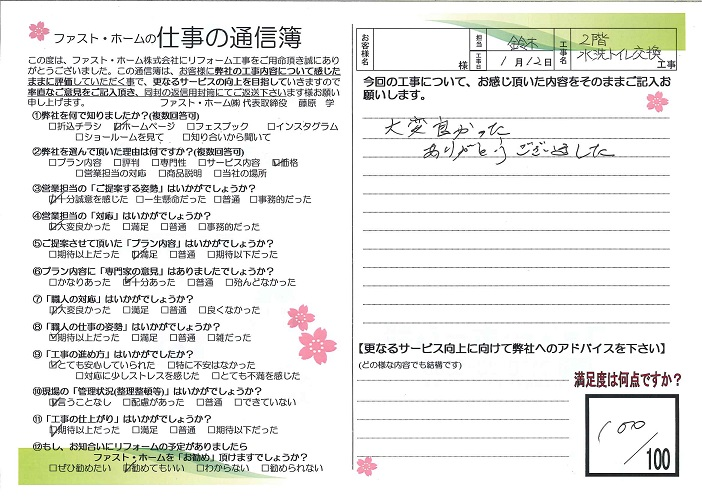 ファスト・ホームの仕事の通信簿
この度は、ファスト・ホーム株式会社にリフォーム工事をご用命頂き誠にあり
がとうございました。この通信簿は、お客様に弊社の工事内容について感じた
ままに評価していただく事で、更なるサービスの向上を目指していきますので
率直なご意見をご記入頂き、同封の返信用封筒にてご返送下さいます様お願い
申し上げます。 ファスト・ホーム㈱ 代表取締役 藤原 学
①弊社を何で知りましたか?(複数回答可)
□折込チラシ ☑ホームページ □フェスブック □インスタグラム
□ショールームを見て □知り合いから聞いて
②弊社を選んで頂いた理由は何ですか?(複数回答可)
□プラン内容 □評判 □専門性 □サービス内容 ☑価格
□営業担当の対応 □商品説明 □当社の場所
③営業担当の「ご提案する姿勢」はいかがでしょうか?
☑十分誠意を感じた □一生懸命だった □普通 □事務的だった
④営業担当の「対応」はいかがでしょうか?
☑大変良かった □満足 □普通 □事務的だった
⑤ご提案させて頂いた「プラン内容」はいかがでしょうか?
□期待以上だった ☑満足 □普通 □期待以下だった
⑥プラン内容に「専門家の意見」はありましたでしょうか?
□かなりあった ☑十分あった □普通 □殆んどなかった
⑦「職人の対応」はいかがでしょうか?
☑大変良かった □満足 □普通 □良くなかった
⑧「職人の仕事の姿勢」はいかがでしょうか?
☑期待以上だった □満足 □普通 □雑だった
⑨「工事の進め方」はいかがでしたか?
☑とても安心していられた □特に不安はなかった
□対応に少しストレスを感じた □とても不満を感じた
⑩現場の「管理状況(整理整頓等)」はいかがでしょうか?
☑言うことなし □配慮があった □普通 □できていない
⑪「工事の仕上がり」はいかがでしょうか?
☑期待以上だった □満足 □普通 □期待以下だった
⑫もし、お知合いにリフォームの予定がありましたら
ファスト・ホームを「お勧め」頂けますでしょうか?
□ぜひ勧めたい ☑勧めてもいい □わからない □勧められない
お客様名 様
担当 鈴木
工事日 1月12日
工事名 2階
水洗トイレ交換 工事
今回の工事について、お感じ頂いた内容をそのままご記入お
願いします。
大変良かった
ありがとうございました
【更なるサービス向上に向けて弊社へのアドバイスを下さい】
(どの様な内容でも結構です)
満足度は何点ですか?
100/100